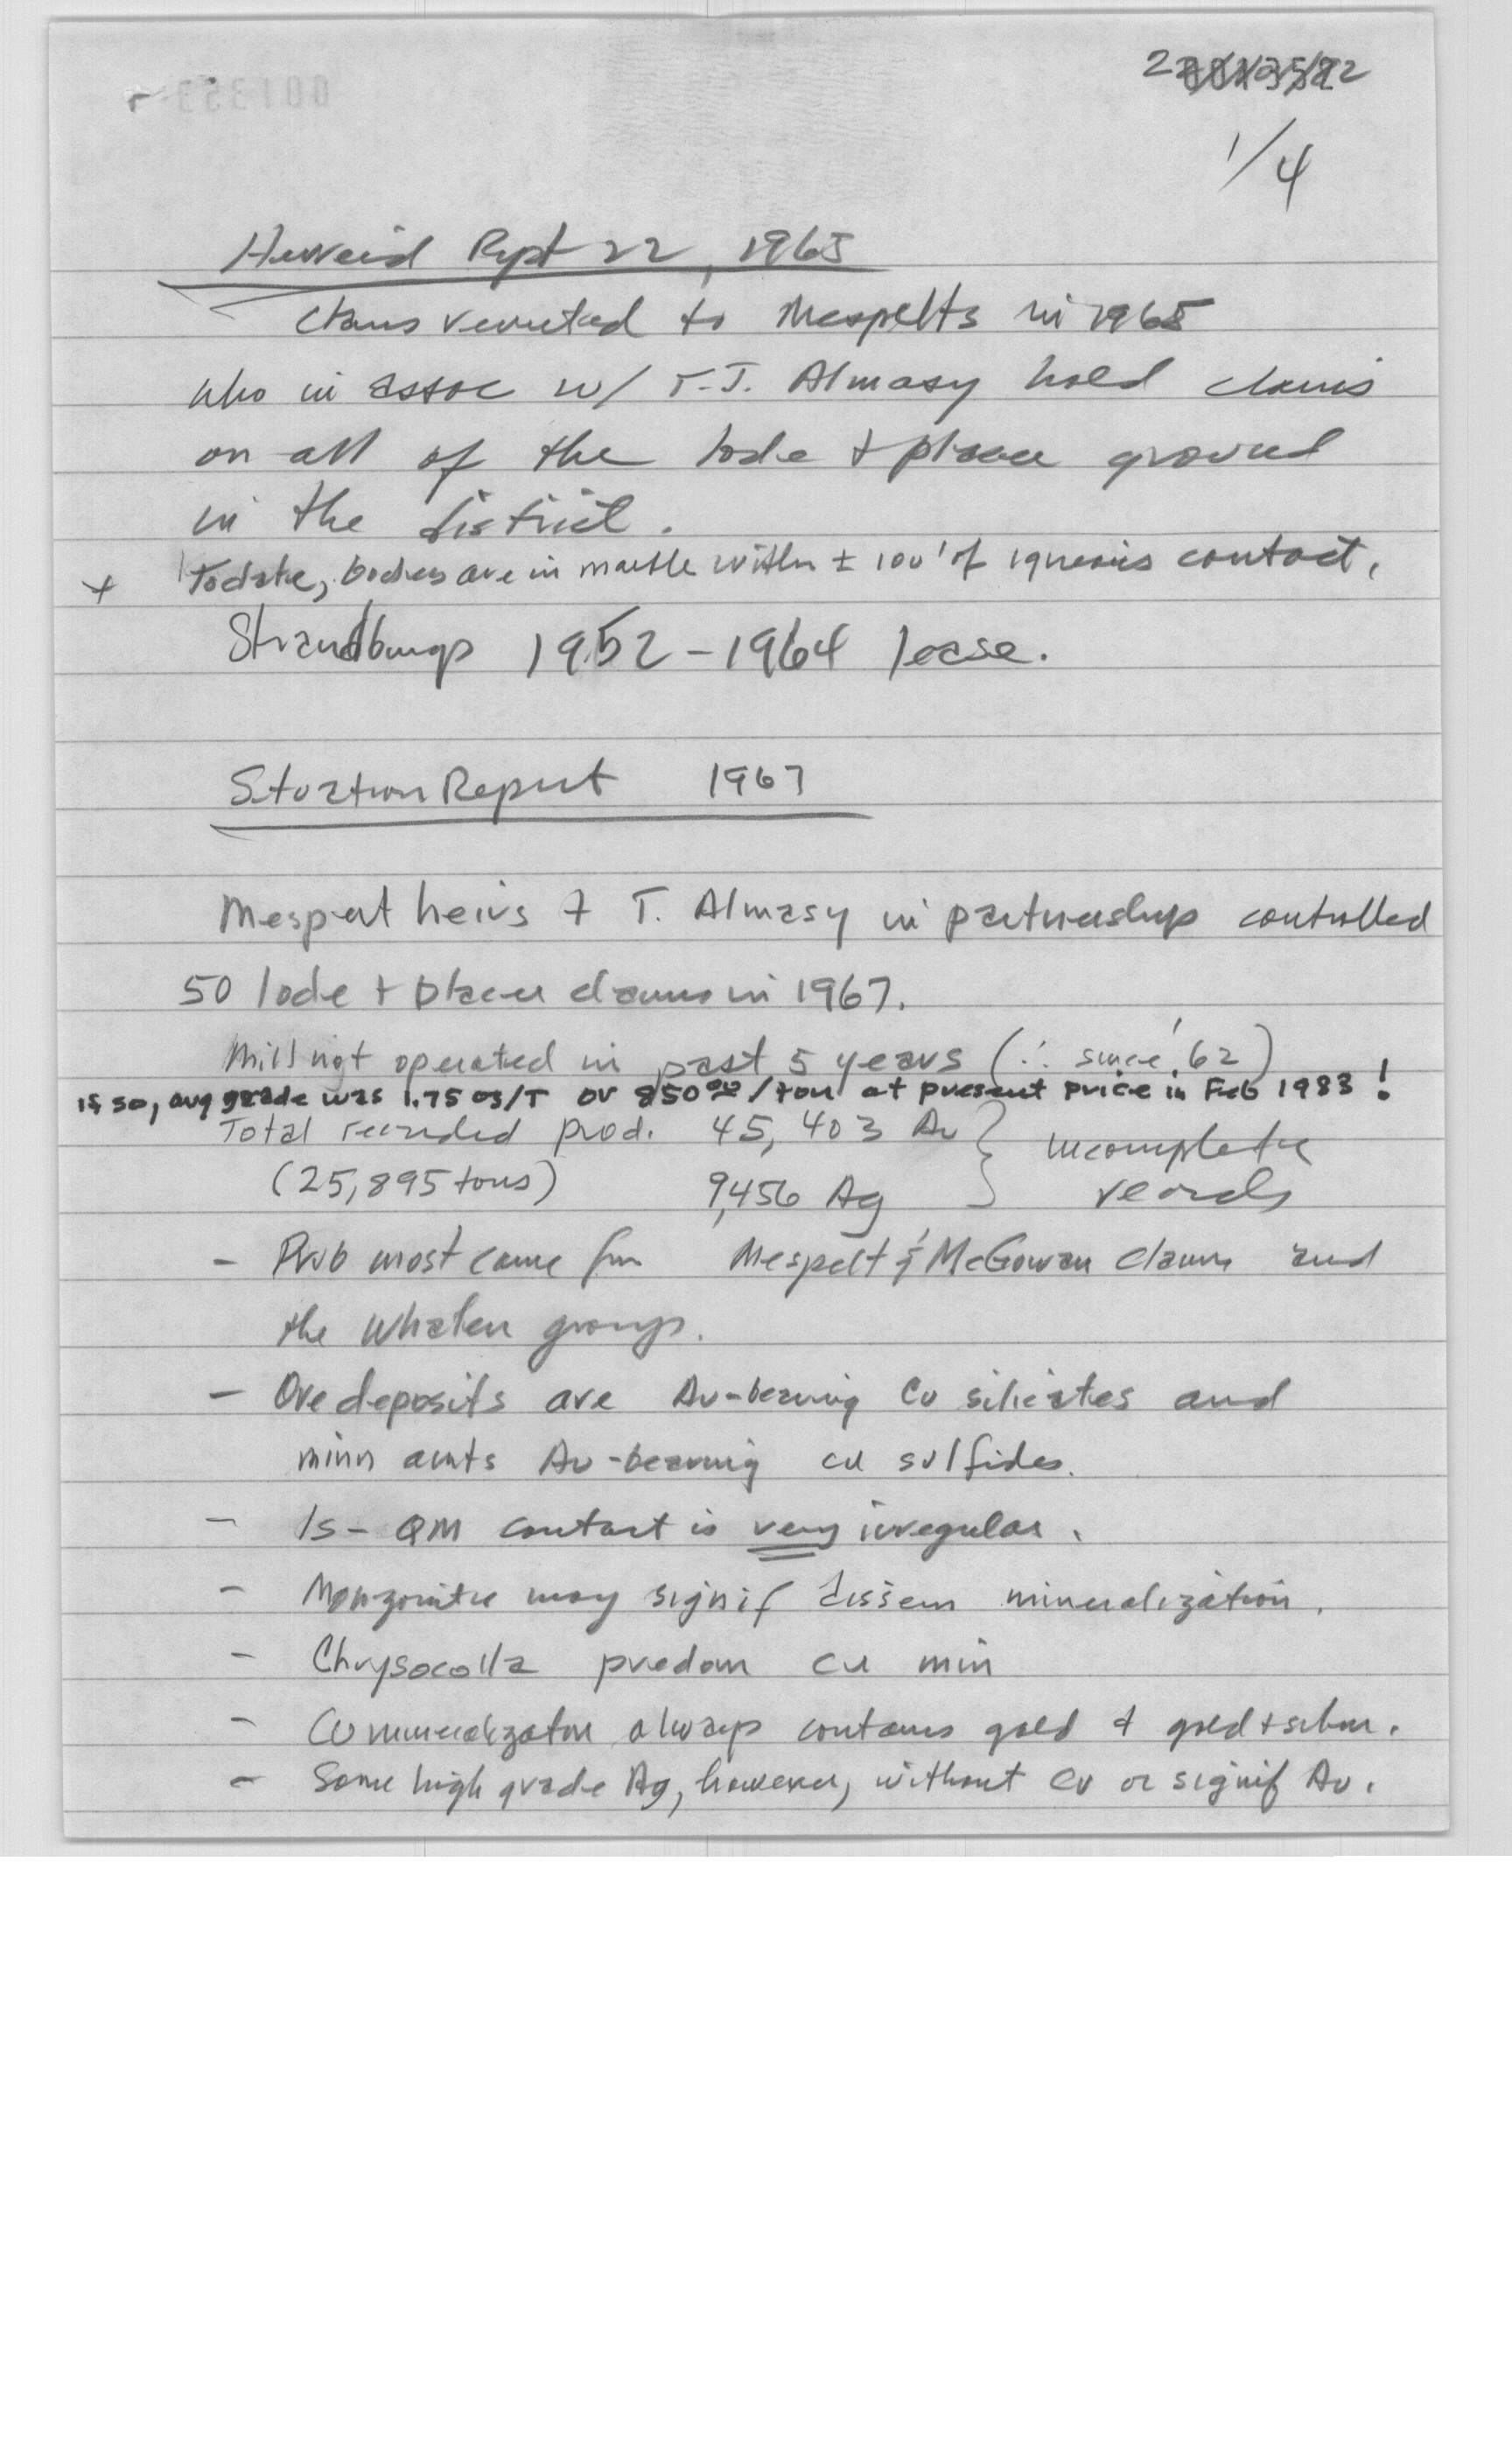 1/4
Herreid Rept 22, 1965
Claims reverted to Mespelts in 1965
who in assoc w/ T.J. Almasy hold claims
on all of the lode + placer ground
in the district.
+ Todate, bodies are in marble within ± 100' of igneous contact.
Strandbergs 1952-1964 lease.
Report 1967
Mespelt heirs & T. Almasy in partnership controlled
50 lode + placer claims in 1967.
Mill not operated in past 5 years (∴ since '62)
if so, avg grade was 1.75 oz/T or 850⁰⁰/ton at present price in Feb 1983!
Total recorded prod. 45,403 Au } incomplete
(25,895 tons) 9,456 Ag } records
- Prob most came fm Mespelt & McGowan claims and
the Whalen group.
- Ore deposits are Au-bearing Cu silicates and
minor amts Au-bearing cu sulfides.
- ls - QM contact is very irregular.
- Monzonite may signif dissem mineralization.
- Chrysocolla predom cu min
- Cu mineralization always contains gold & gold + silver.
- Some high grade Ag, however, without Cu or signif Au.